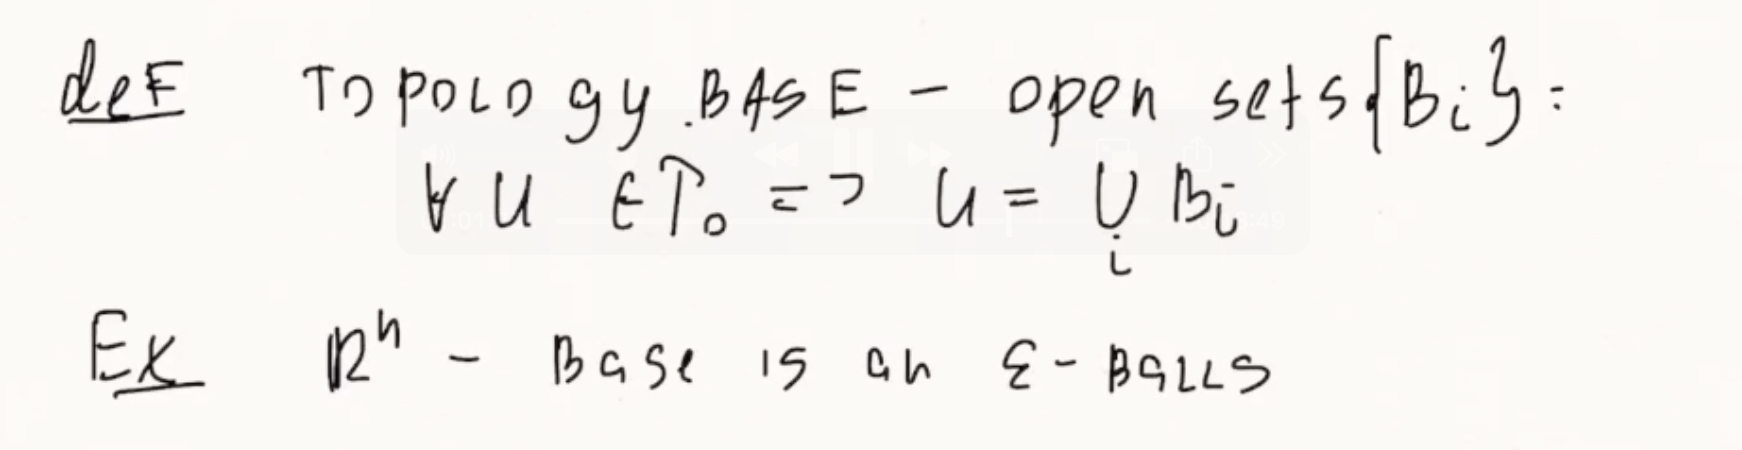 def TOPOLOgy BASE - open sets {Bi}:
∀ U ∈ T₀ => U = ∪ Bi
i
Ex ℝⁿ - Base is an ε-BaLLS